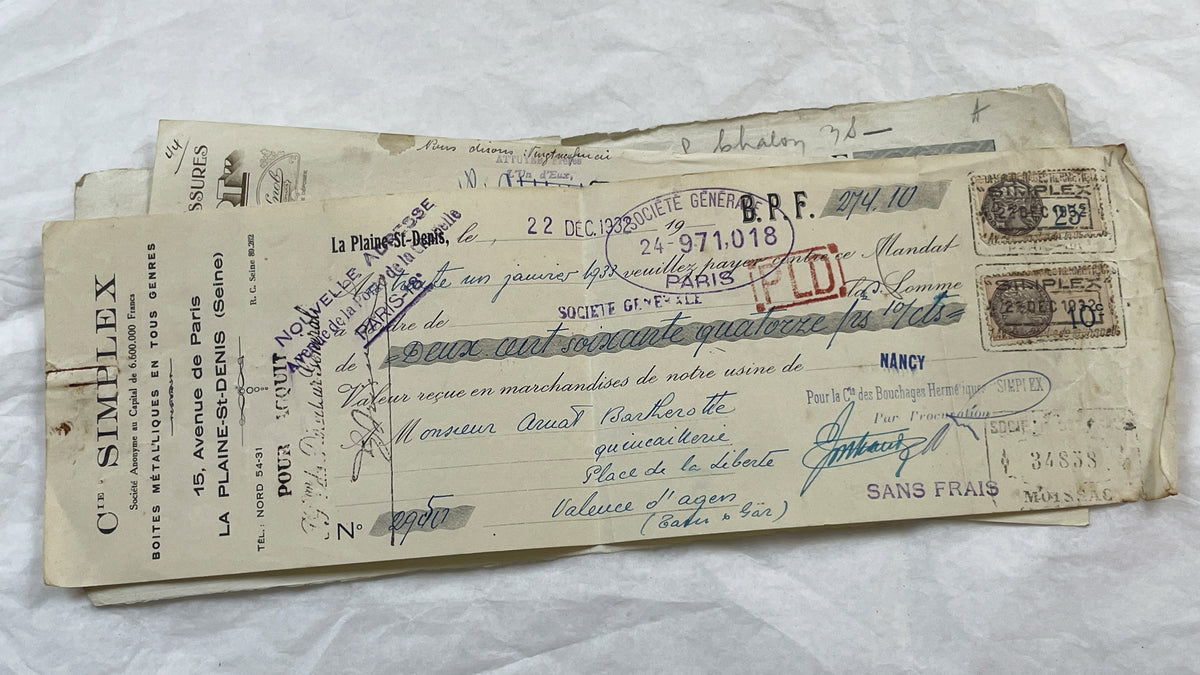 44
Nous disons
SSURES
P Chalon 38—
A
Cie SIMPLEX
Société Anonyme au Capital de 6.600.000 Francs
BOITES MÉTALLIQUES EN TOUS GENRES
15, Avenue de Paris
LA PLAINE-St-DENIS (Seine)
R. C. Seine 80.262
TÉL.: NORD 54-31
POUR ACQUIT
NOUVELLE ADRESSE
de la Porte de la Chapelle
PARIS-18e
La Plaine-St-Denis, le 22 DEC. 1932 19
B. P. F. 274.10
SOCIÉTÉ GÉNÉRALE
24-971,018
PARIS
PLD
un janvier 1933 veuillez payer contre ce Mandat
SOCIETE GENERALE
Somme
de =Deux cent soixante quatorze frs 10/cts=
Valeur reçue en marchandises de notre usine de NANCY
Pour la Cie des Bouchages Hermétiques SIMPLEX
Par Procuration
Monsieur Arnat Bartherotte
quincaillerie
Place de la Liberte
Valence d'agen
SANS FRAIS
No 2950
SIMPLEX
22 DEC 1932
25
SIMPLEX
22 DEC 1932
10c
34858
MOISSAC